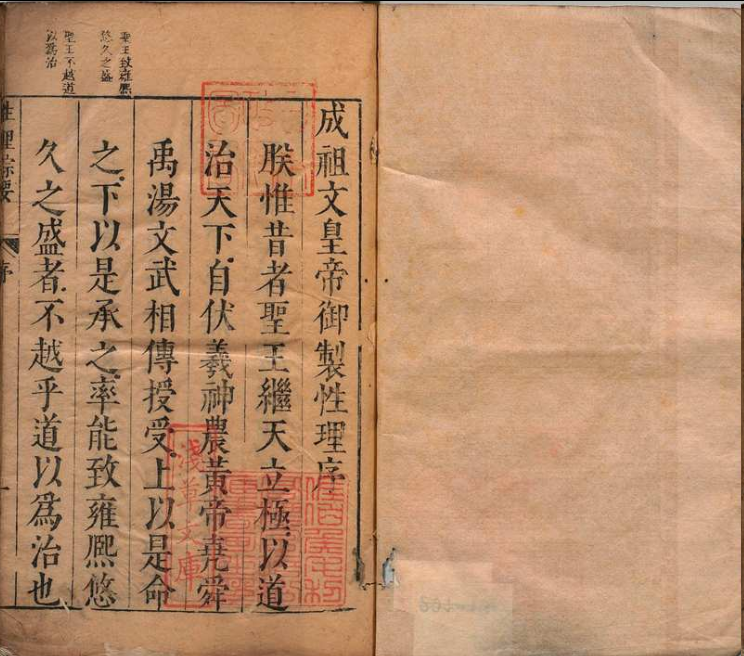 成祖文皇帝御製性理序
朕惟昔者聖王繼天立極以道
治天下自伏羲神農黃帝堯舜
禹湯文武相傳授受上以是命
之下以是承之率能致雍熈悠
久之盛者不越乎道以爲治也
聖王致雍熈
悠久之盛
聖王不越道
以爲治
性理綜要
序
淺草文庫